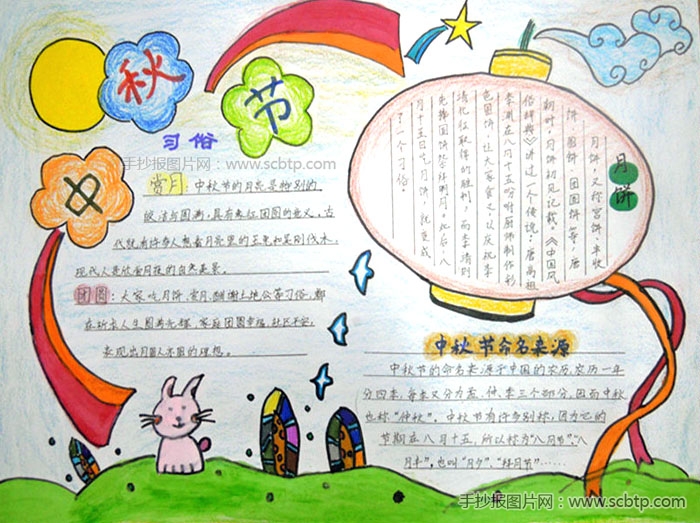 中
秋
节
习俗
手抄报图片网：www.scbtp.com
赏月：中秋节的月亮是特别的
皎洁与圆满，具有象征团圆的意义，古
代就有许多人想看月亮里的玉兔和吴刚伐木，
现代人喜欣赏月夜的自然美景。
团圆：大家吃月饼、赏月、酬谢土地公等习俗，都
在祈求人生圆满光辉、家庭团圆幸福、社区平安，
表现出月圆人亦圆的理想。
月饼
月饼，又称宫饼、丰收
饼、团圆饼等，唐
朝时，月饼初见记载。《中国风
俗辞典》讲过一个传说：唐高祖
李渊在八月十五吩咐厨师制作彩
色圆饼，让大家食之，以庆祝李
靖讨征取得的胜利，而李靖则
先捧圆饼祭拜明月。此后，八
月十五日吃月饼，就变成
了一个习俗。
中秋节命名来源
中秋节的命名来源于中国的农历，农历一年
分四季，每季又分为孟、仲、季三个部分，因而中秋
也称“仲秋”。中秋节有许多别称，因为它的
节期在八月十五，所以称为“八月节”、“八
月半”，也叫“月夕”、“拜月节”……
手抄报图片网：www.scbtp.com